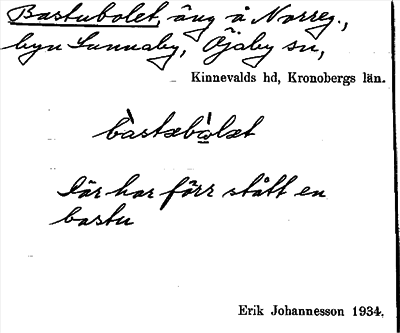 Bastubolet, äng å Norreg.,
byn Sunnaby, Öjaby sn,
Kinnevalds hd, Kronobergs län.
bàstæbòlæt
Där har förr stått en
bastu
Erik Johannesson 1934.